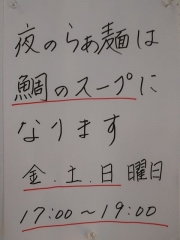 夜のらぁ麺は
鯛のスープに
なります
金.土.日 曜日
17:00〜19:00